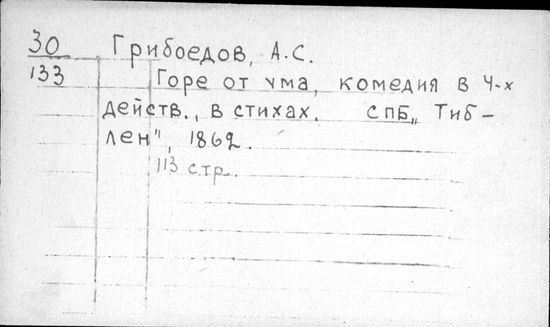 30 Грибоедов, А.С.
133 Горе от ума, комедия в 4-х
действ., в стихах. СПБ „Тиб-
лен", 1862.
113 стр.